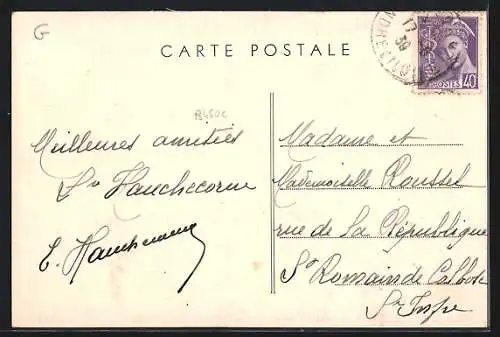 G
CARTE POSTALE
17
39
POSTES 40
B450c
Meilleures amitiés
Hauchecorne
E. Hauchecorne
Madame et
Mademoiselle Roussel
rue de la République
St Romain de Colbosc
Sne Infre